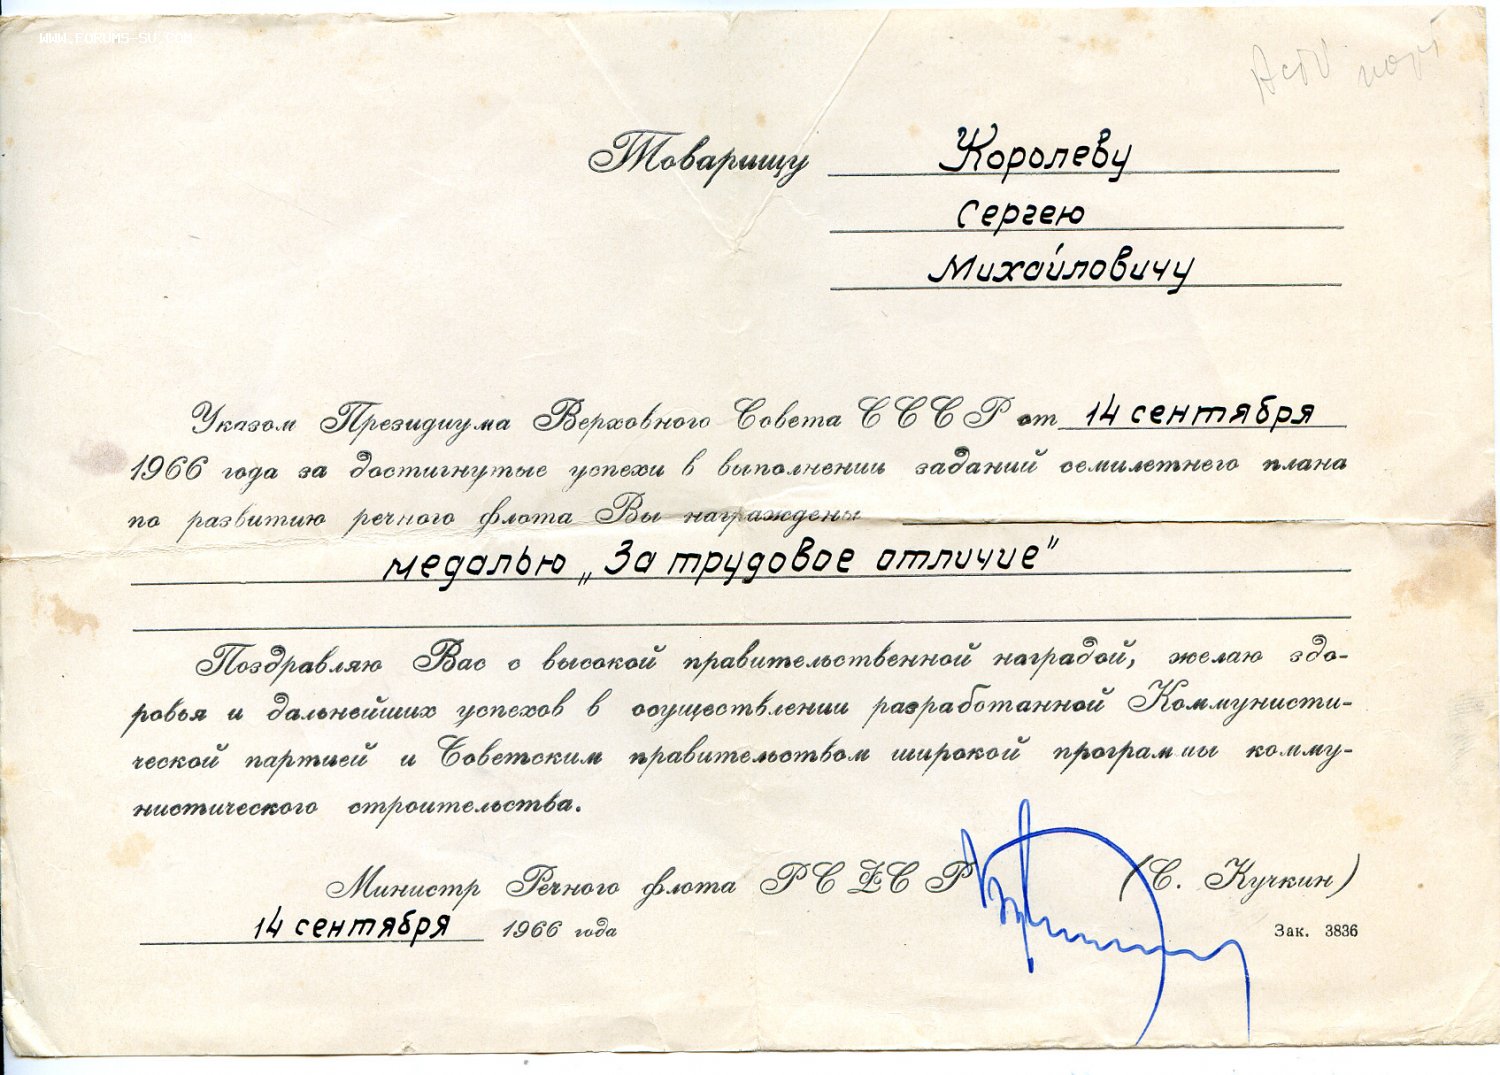 WWW.FORUMS-SU.COM
Товарищу Королеву
Сергею
Михайловичу
Указом Президиума Верховного Совета СССР от 14 сентября
1966 года за достигнутые успехи в выполнении заданий семилетнего плана
по развитию речного флота Вы награждены
медалью „За трудовое отличие"
Поздравляю Вас с высокой правительственной наградой, желаю здо-
ровья и дальнейших успехов в осуществлении разработанной Коммунисти-
ческой партией и Советским правительством широкой программы комму-
нистического строительства.
Министр Речного флота РСФСР (С. Кучкин)
14 сентября 1966 года
Зак. 3836